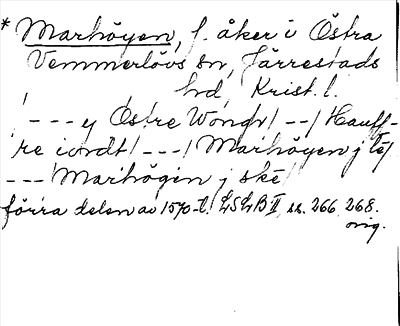 * Marhöyen, f. åker i Östra
Vemmerlövs sn, Järrestads
hd, Krist. l.
/ - - - y Östre Wongh / - - / Hauff-
re iordt / - - - / Marhöyen j tej
- - - / Marhögen j ske /
förra delen av 1570-t. LSLB II, ss. 266, 268.
orig.